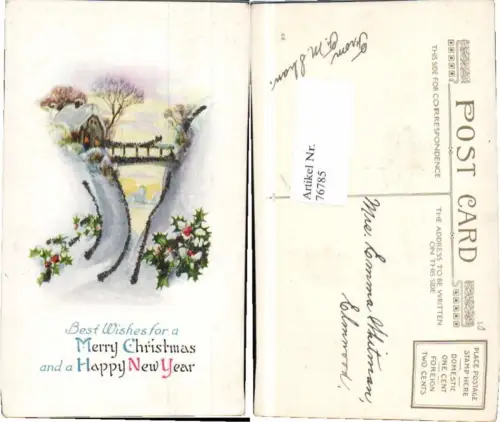 Best Wishes for a
Merry Christmas
and a Happy New Year
POST CARD
THIS SIDE FOR CORRESPONDENCE
THE ADDRESS TO BE WRITTEN
ON THIS SIDE
PLACE POSTAGE
STAMP HERE
DOMESTIC
ONE CENT
FOREIGN
TWO CENTS
From
Artikel Nr.
76785
Mrs. Emma Whitman,
Elmwood,